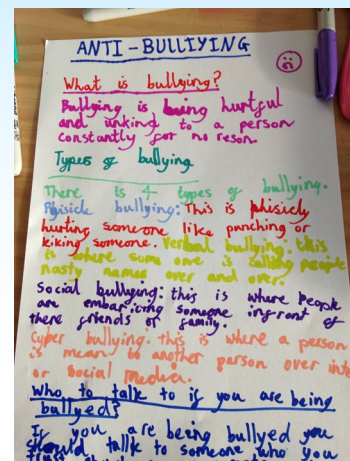 ANTI-BULLIYING
What is bullying?
Bullying is being hurtful
and unkind to a person
constantly for no reson
Types of bullying
There is 4 types of bullying.
Phisicle bullying: This is phisicly
hurting someone like punching or
kiking someone. Verbal bullying: this
is where some one is calling people
nasty names over and over.
Social bullying: this is where people
are embaricing someone infront of
there friends or family.
Cyber bullying. this is where a person
is mean to another person over inte
or social media.
Who to talk to if you are being
bullyed?
If you are being bullyed you
should talk to someone who you
trust